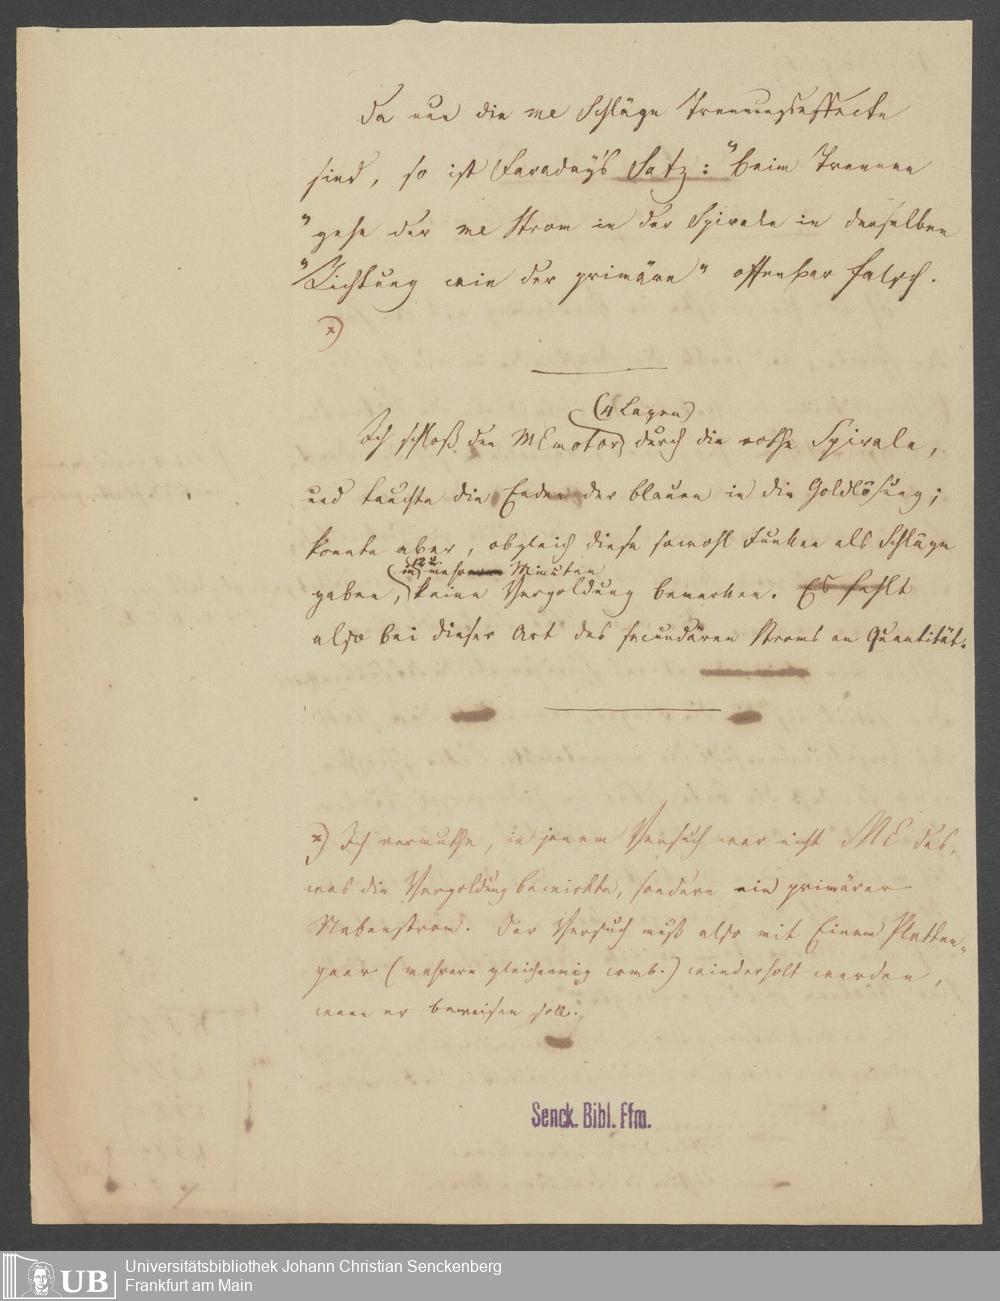 Da nun die me Schläge Trennungseffecte
sind, so ist Faraday's Satz: "beim Trennen
"gehe der me Strom in der Spirale in derselben
"Richtung wie der primäre" offenbar falsch.
×)
(4 Lagen)
Ich schloß den MEmotor durch die rothe Spirale,
und tauchte die Enden der blauen in die Goldlösung;
konnte aber, obgleich diese sowohl Funken als Schläge
in 12 Minuten
gaben, keine Vergoldung bemerken. Es fehlt
also bei dieser Art des secundären Stroms an Quantität.
×) Ich vermuthe, in jenem Versuch war nicht ME das,
was die Vergoldung bewirkte, sondern ein primärer
Nebenstrom. Der Versuch muß also mit Einem Platten-
paar (mehrere gleichnamig comb.) wiederholt werden,
wenn er beweisen soll.
Senck. Bibl. Ffm.
UB
Universitätsbibliothek Johann Christian Senckenberg
Frankfurt am Main